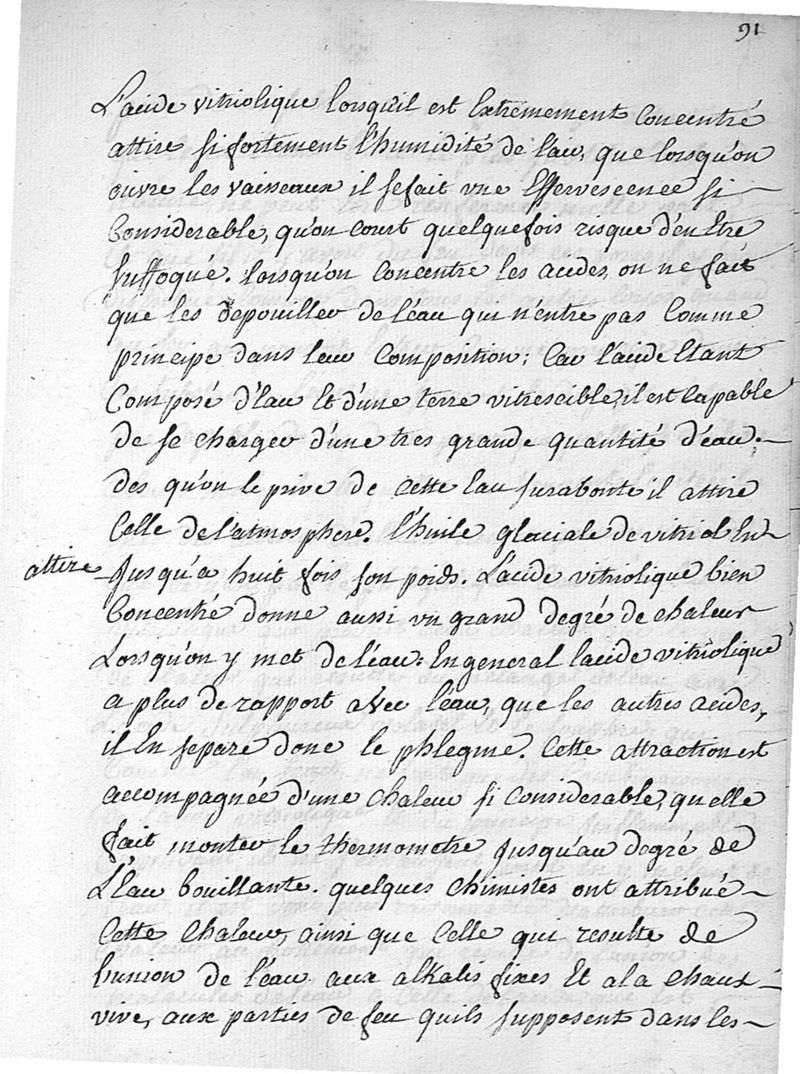 91
L'acide vitriolique lorsqu'il est Extremement Concentré
attire si fortement l'humidité de l'air, que lorsqu'on
ouvre les vaisseaux il se fait une Effervescence si
Considerable, qu'on court quelquefois risque d'en Etre
suffoque. Lorsqu'on Concentre les acides, on ne fait
que les depouiller de l'eau qui n'entre pas Comme
principe dans leur Composition; Car l'acide Etant
Composé d'Eau Et d'une terre vitrescible, il est Capable
de se charger d'une tres grande quantité d'eau.
des qu'on le prive de cette Eau surabonte il attire
Celle de l'atmosphere. l'huile glaciale de vitriol En
attire jusqu'a huit fois son poids. L'acide vitriolique bien
Concentré donne aussi un grand degré de chaleur
Lorsqu'on y met de l'éau: En general l'acide vitriolique
a plus de rapport avec l'eau, que les autres acides,
il En separe donc le phlegme. Cette attraction est
accompagnée d'une chaleur si Considerable, qu'elle
fait monter le thermometre jusqu'au degré de
L'Eau bouillante. quelques Chimistes ont attribué
Cette Chaleur, ainsi que Celle qui resulte de
l'union de l'éau aux alkalis fixes Et a la chaux
vive, aux parties de feu quils supposent dans les